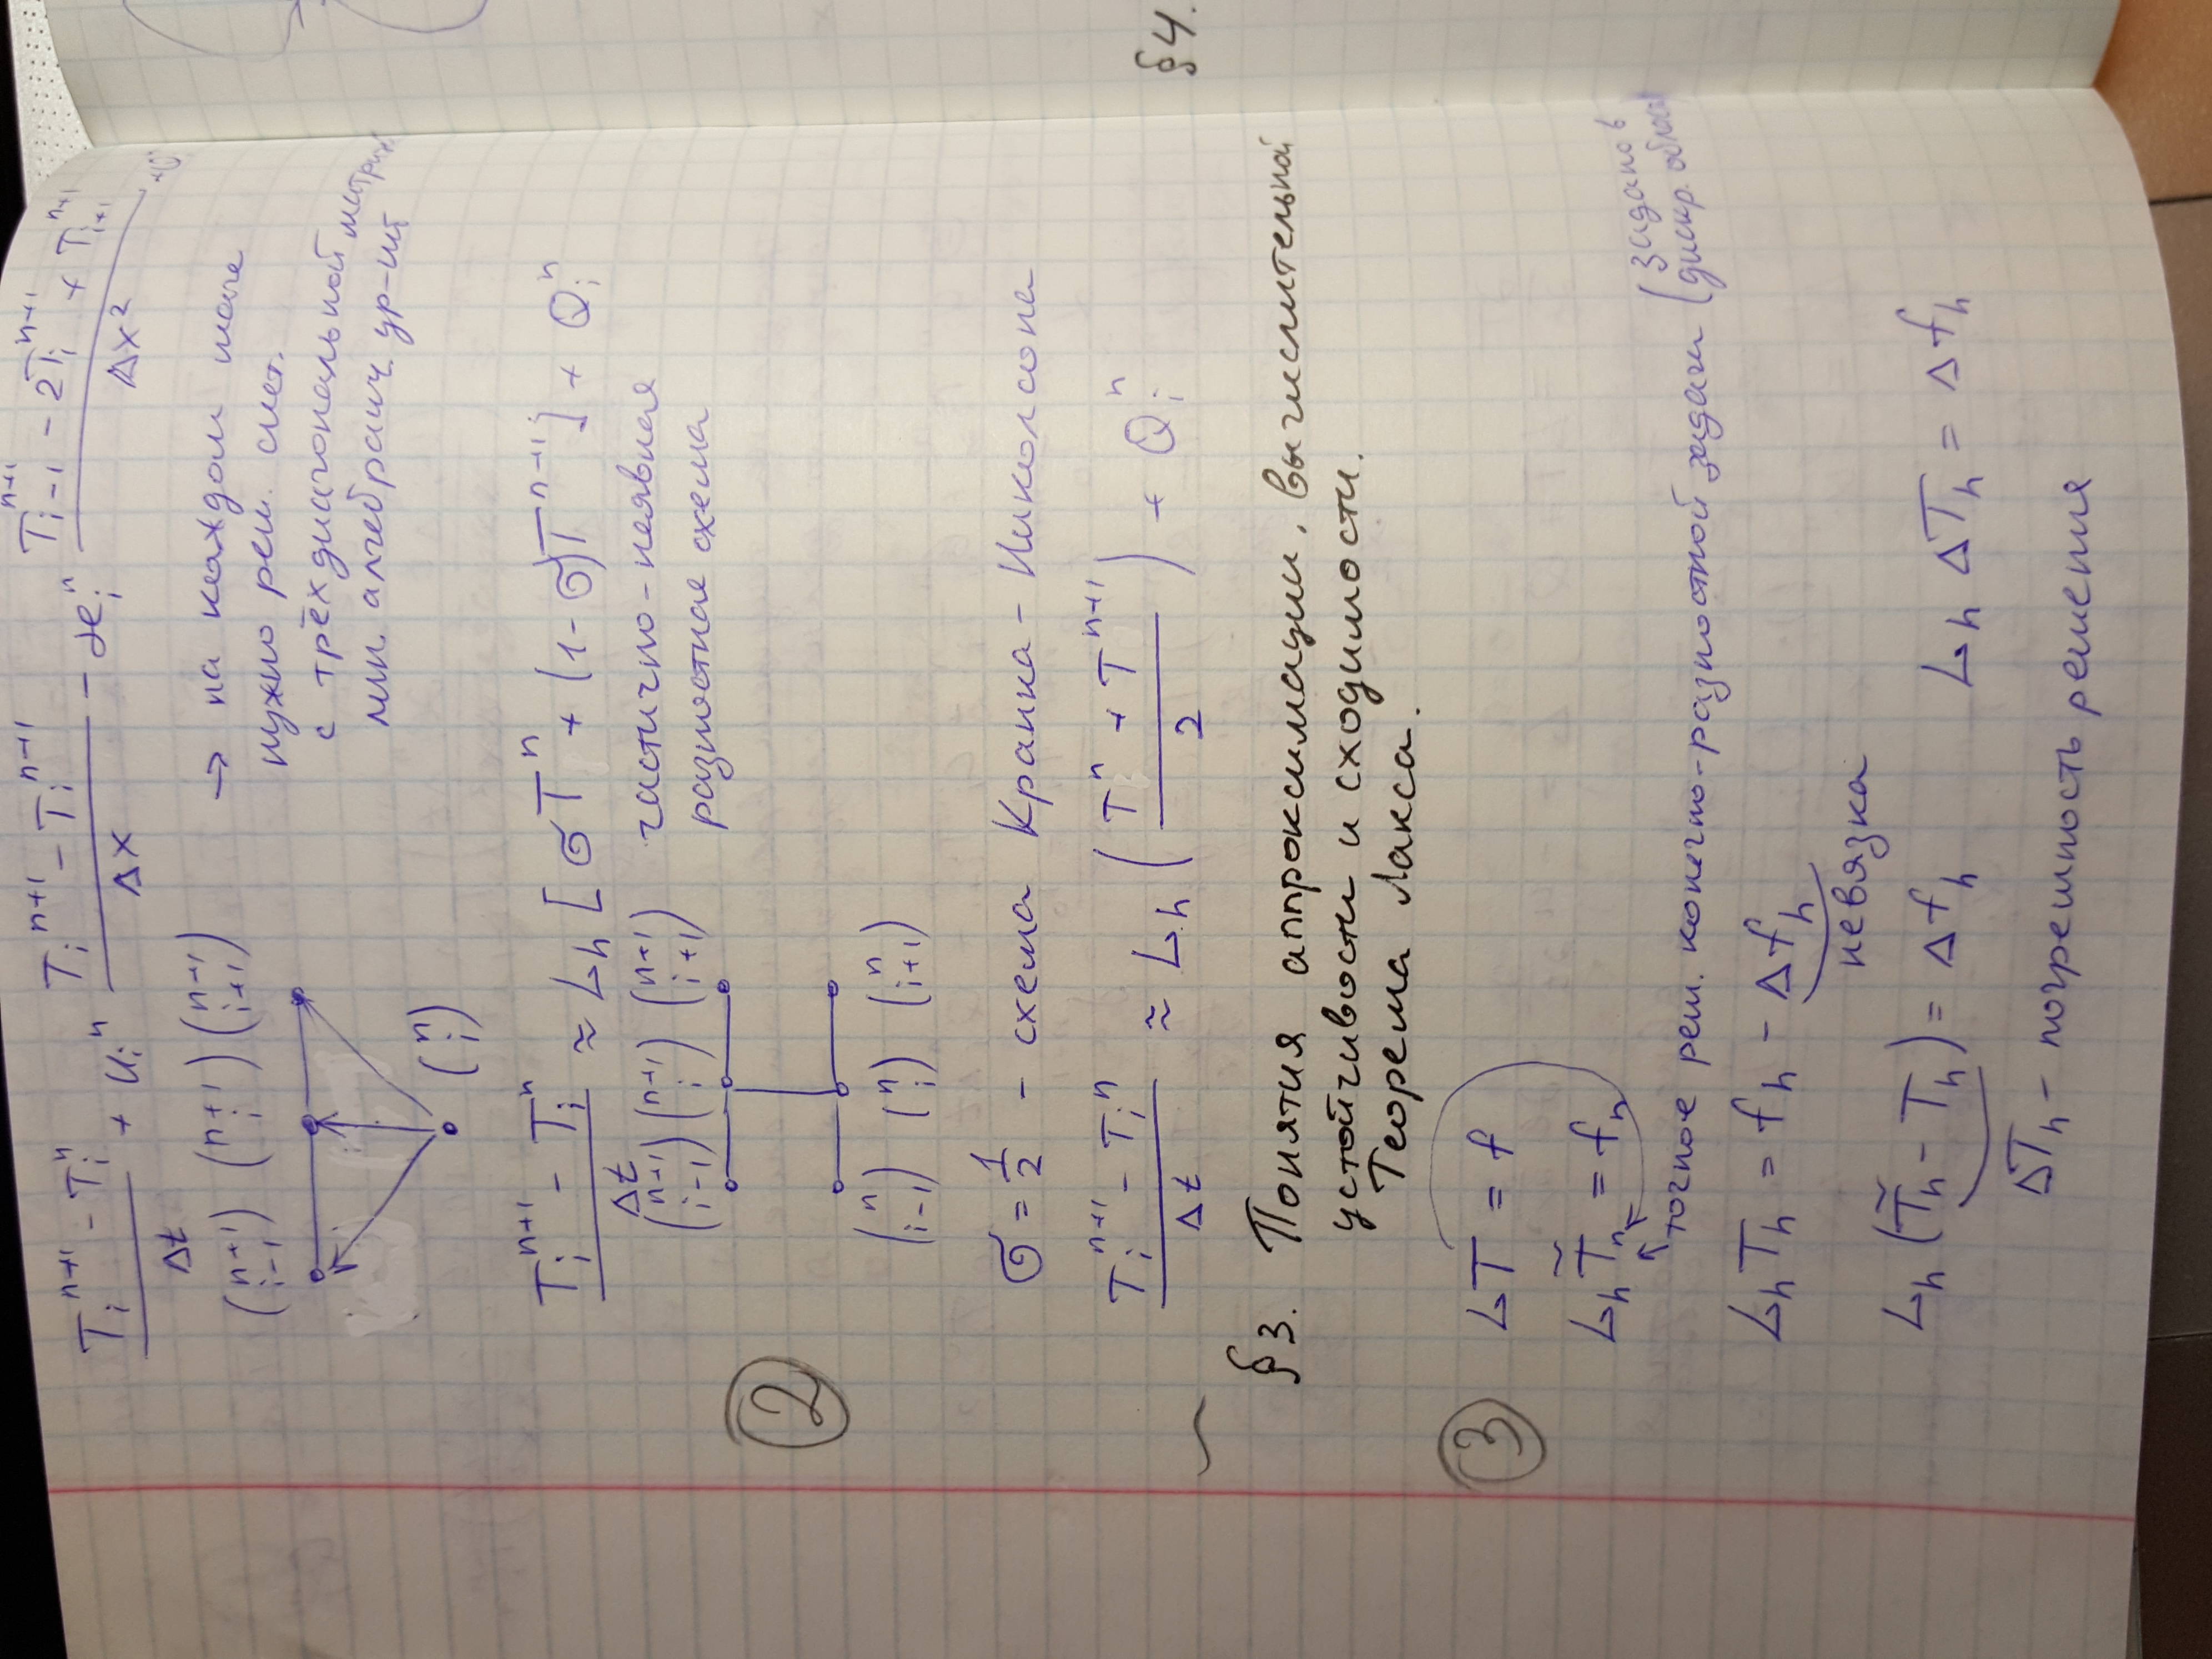 (T_i^{n+1} - T_i^n)/Δt + u_i^n (T_i^{n+1} - T_i^{n+1})/Δx - æ_i^n (T_{i-1}^{n+1} - 2T_i^{n+1} + T_{i+1}^{n+1})/Δx²
(n+1 i-1) (n+1 i) (n+1 i+1)
→ на каждом шаге
нужно реш. сист.
с трёхдиагональной
лин. алгебраич. ур-ий
(n i)
(T_i^{n+1} - T_i^n)/Δt ≈ L_h [σT^n + (1-σ)T^{n+1}] + Q_i^n
(n+1 i-1) (n+1 i) (n+1 i+1)
частично-неявная
разностная схема
②
(n i-1) (n i) (n i+1)
σ = 1/2 - схема Кранка-Николсона
(T_i^{n+1} - T_i^n)/Δt ≈ L_h ((T^n + T^{n+1})/2) + Q_i^n
§4.
§3. Понятия аппроксимации, вычислительной
устойчивости и сходимости.
Теорема Лакса.
③ LT = f
L_h T̃_h = f_h
точное реш. конечно-разностной задачи (задано в
дискр.
L_h T_h = f_h - Δf_h
невязка
L_h (T̃_h - T_h) = Δf_h L_h ΔT_h = Δf_h
ΔT_h - погрешность решения